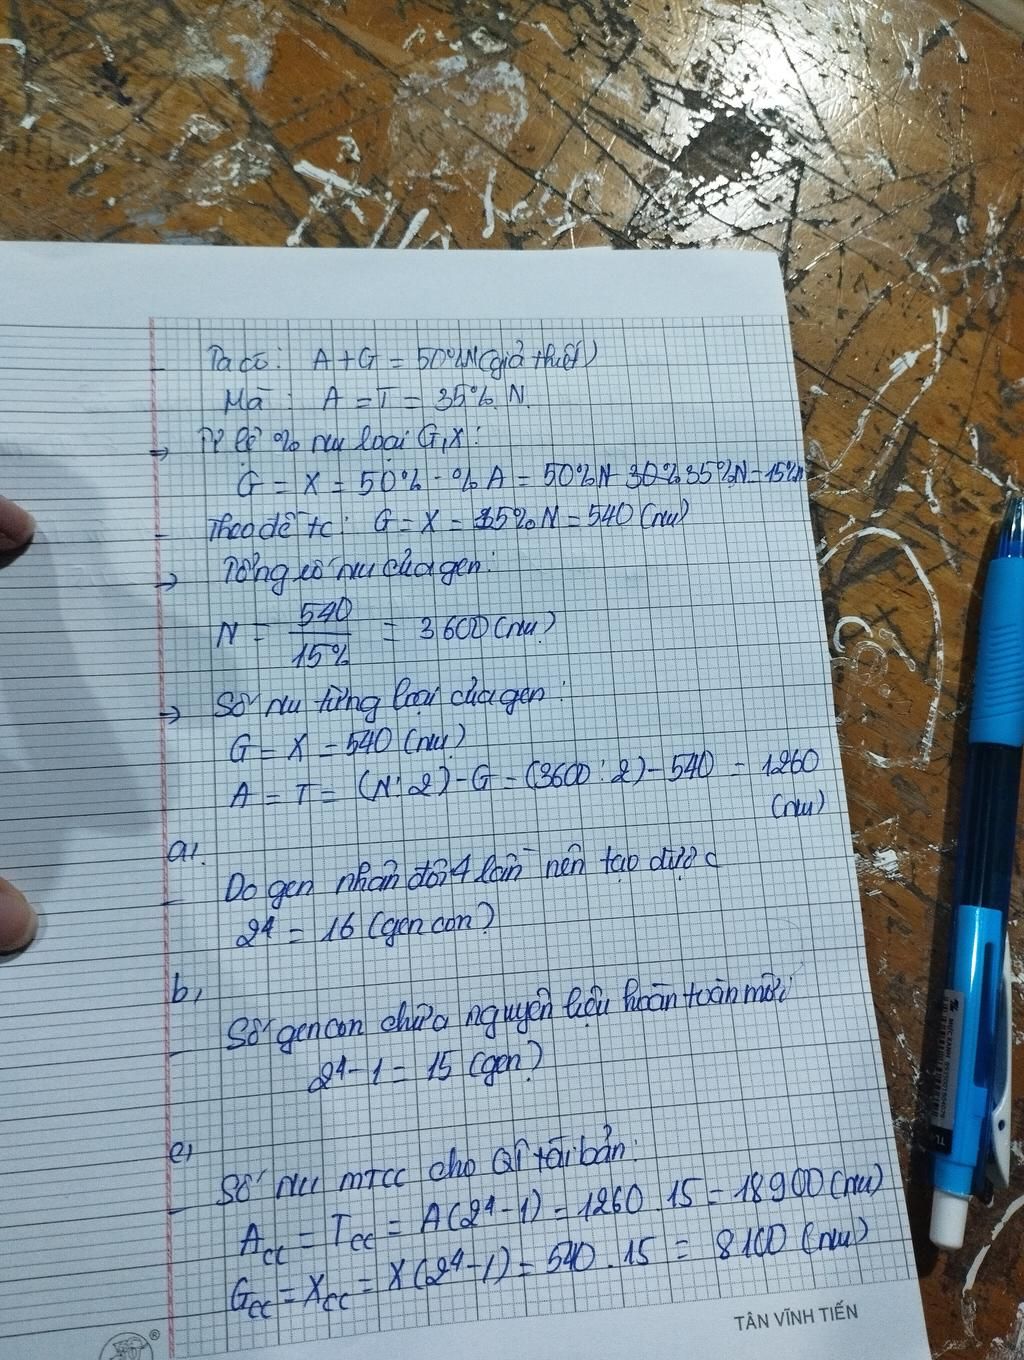 - Ta có: A+G = 50%N (giả thiết)
Mà : A = T = 35% N
→ Tỉ lệ % nu loại G, X :
G = X = 50% - % A = 50%N - 35%N = 15%N
- Theo đề tc: G = X = 15% N = 540 (nu)
→ Tổng số nu của gen:
N = 540 / 15% = 3600 (nu)
→ Số nu từng loại của gen:
G = X = 540 (nu)
A = T = (N:2) - G = (3600 : 2) - 540 = 1260
(nu)
a,
- Do gen nhân đôi 4 lần nên tạo được
2⁴ = 16 (gen con)
b,
- Số gen con chứa nguyên liệu hoàn toàn mới
2⁴ - 1 = 15 (gen)
c,
- Số nu MTCC cho QT tái bản:
Acc = Tcc = A(2⁴-1) = 1260 . 15 = 18900 (nu)
Gcc = Xcc = X(2⁴-1) = 540 . 15 = 8100 (nu)
TÂN VĨNH TIẾN
®